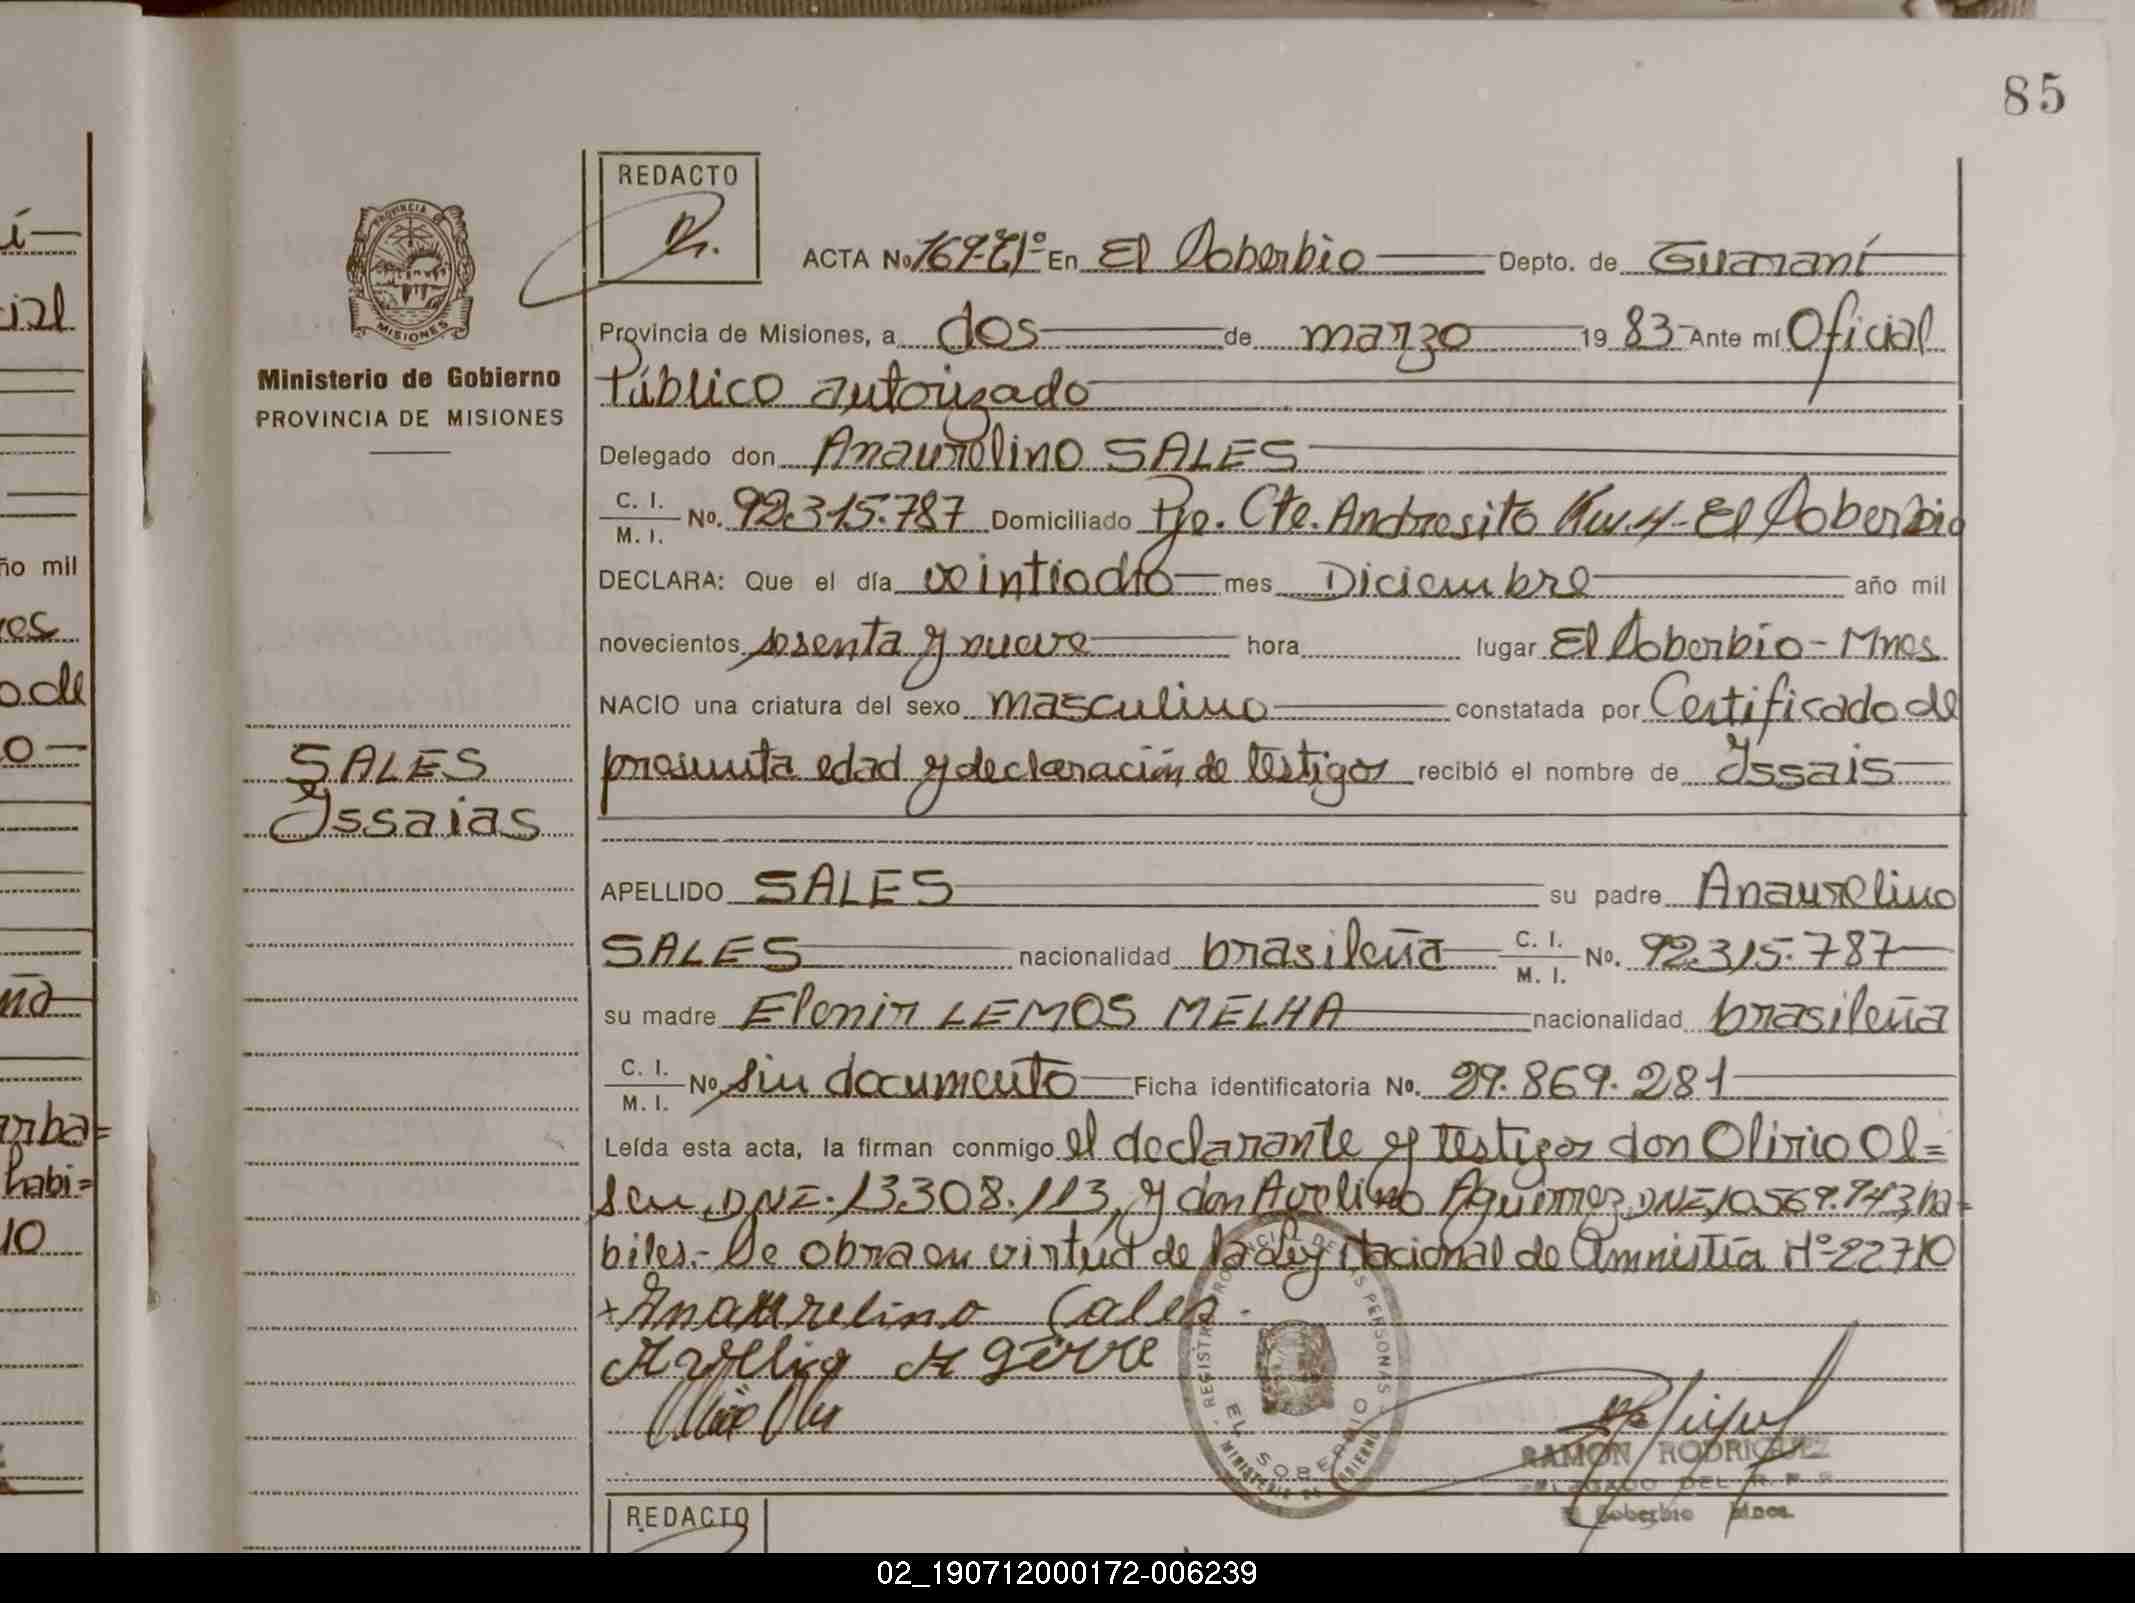 85
REDACTO
ACTA No 169-T1º En El Soberbio Depto. de Guaraní
Provincia de Misiones, a dos de marzo 19 83 Ante mí Oficial
Público autorizado
Ministerio de Gobierno
PROVINCIA DE MISIONES
Delegado don Anaurelino SALES
C. I. M. I. No. 92.315.787 Domiciliado Pje. Cte. Andresito Km. 4 - El Soberbio
DECLARA: Que el día veintiocho mes Diciembre año mil
novecientos sesenta y nueve hora lugar El Soberbio - Mnes
NACIO una criatura del sexo masculino constatada por Certificado de
presunta edad y declaración de testigos recibió el nombre de Issais
SALES
Issaias
APELLIDO SALES su padre Anaurelino
SALES nacionalidad brasileña C. I. M. I. No. 92.315.787
su madre Elenir LEMOS MELHA nacionalidad brasileña
C. I. M. I. No sin documento Ficha identificatoria No. 29.869.281
Leída esta acta, la firman conmigo el declarante y testigos don Olirio Ol=
sen, DNI. 13.308.113, y don Avelino Aguirrez, DNI. 10.569.943, ha=
biles.- Se obra en virtud de la ley Nacional de Amnistía Nº 22710
+ Anaurelino Sales.
REGISTRO PROVINCIAL DE LAS PERSONAS
EL SOBERBIO
MINISTERIO DE GOBIERNO
RAMON RODRIGUEZ
DELEGADO DEL R. P. P.
El Soberbio Mnes.
REDACTO
ial
ño mil
o de
habi=
10
PROVINCIA DE
MISIONES
02_190712000172-006239